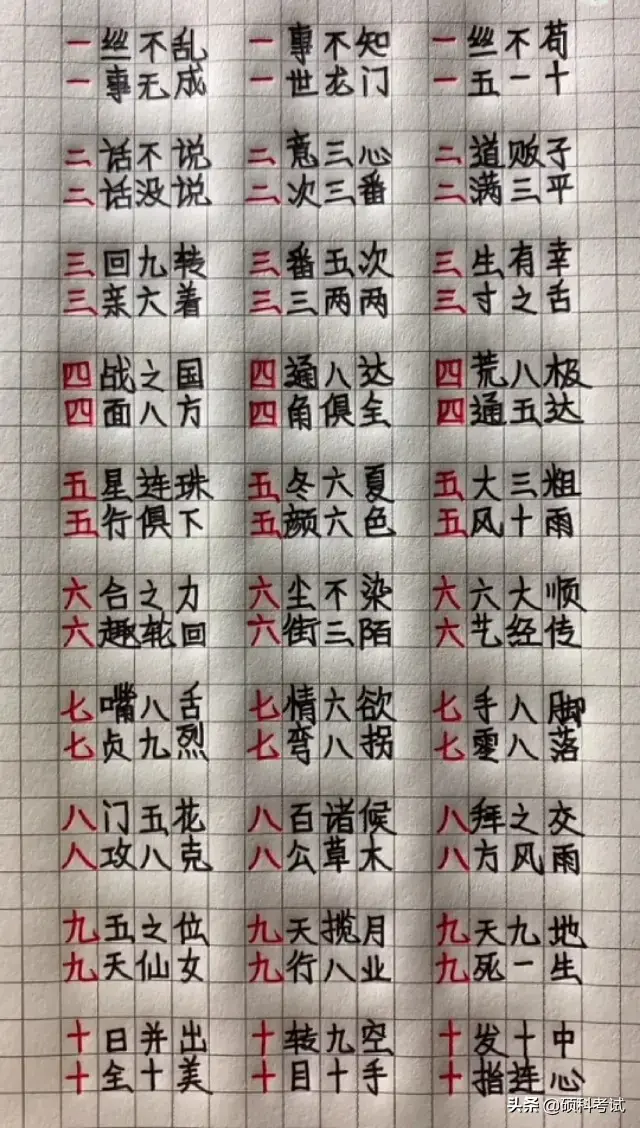 一丝不乱 一事不知 一丝不苟
一事无成 一世龙门 一五一十
二话不说 二意三心 二道贩子
二话没说 二次三番 二满三平
三回九转 三番五次 三生有幸
三亲六着 三三两两 三寸之舌
四战之国 四通八达 四荒八极
四面八方 四角俱全 四通五达
五星连珠 五冬六夏 五大三粗
五行俱下 五颜六色 五风十雨
六合之力 六尘不染 六六大顺
六趣轮回 六街三陌 六艺经传
七嘴八舌 七情六欲 七手八脚
七贞九烈 七弯八拐 七零八落
八门五花 八百诸候 八拜之交
八攻八克 八公草木 八方风雨
九五之位 九天揽月 九天九地
九天仙女 九行八业 九死一生
十日并出 十转九空 十发十中
十全十美 十目十手 十指连心
头条 @硕科考试